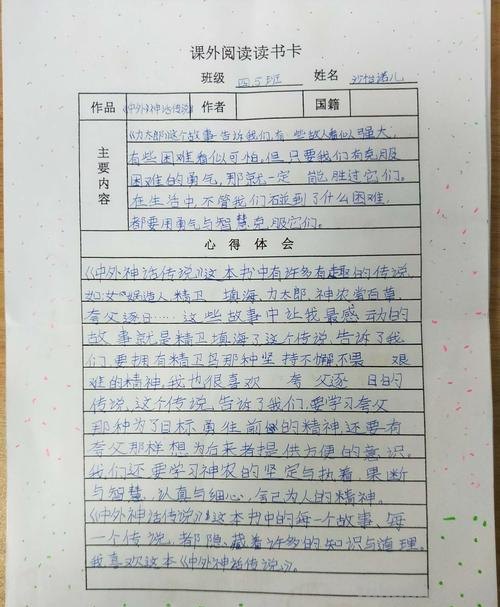 课外阅读读书卡
班级 四5班 姓名 沙怡诺儿
作品 《中外神话传说》 作者 国籍
主要内容
《力太郎》这个故事告诉我们,有些敌人看似强大,
有些困难看似可怕,但只要我们有克服
困难的勇气,那就一定能胜过它们。
在生活中,不管我们碰到了什么困难,
都要用勇气与智慧克服它们。
心得体会
《中外神话传说》这本书中有许多有趣的传说,
如女娲造人,精卫填海,力太郎,神农尝百草,
夸父逐日……这些故事中让我最感动的
故事就是精卫填海了这个传说,告诉了我
们,要拥有精卫鸟那种坚持不懈不畏艰
难的精神,我也很喜欢夸父逐日的
传说,这个传说,告诉了我们,要学习夸父
那种为了目标勇往前的精神,还要有
夸父那样想为后来者提供方便的意识。
我们还要学习神农的坚定与执着,果断
与智慧,认真与细心,舍己为人的精神。
《中外神话传说》这本书中的每一个故事,每
一个传说,都隐藏着许多的知识与道理。
我喜欢这本《中外神话传说》。